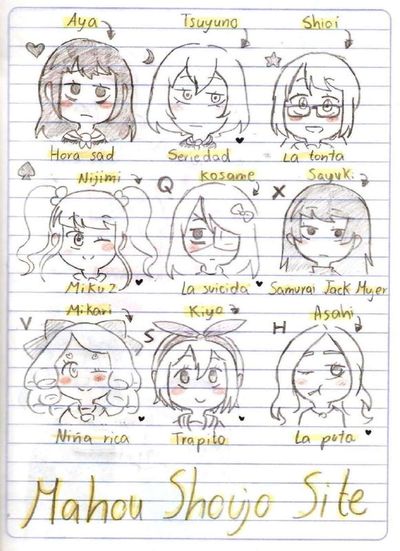 Aya Tsuyuno Shioi
Hora sad Seriedad La tonta
Nijimi Q Kosame X Sayuki
Miku 2 La suicida Samurai Jack Mujer
V Mikari S Kiyo H Asahi
Niña rica Trapito La puta
Mahou Shoujo Site